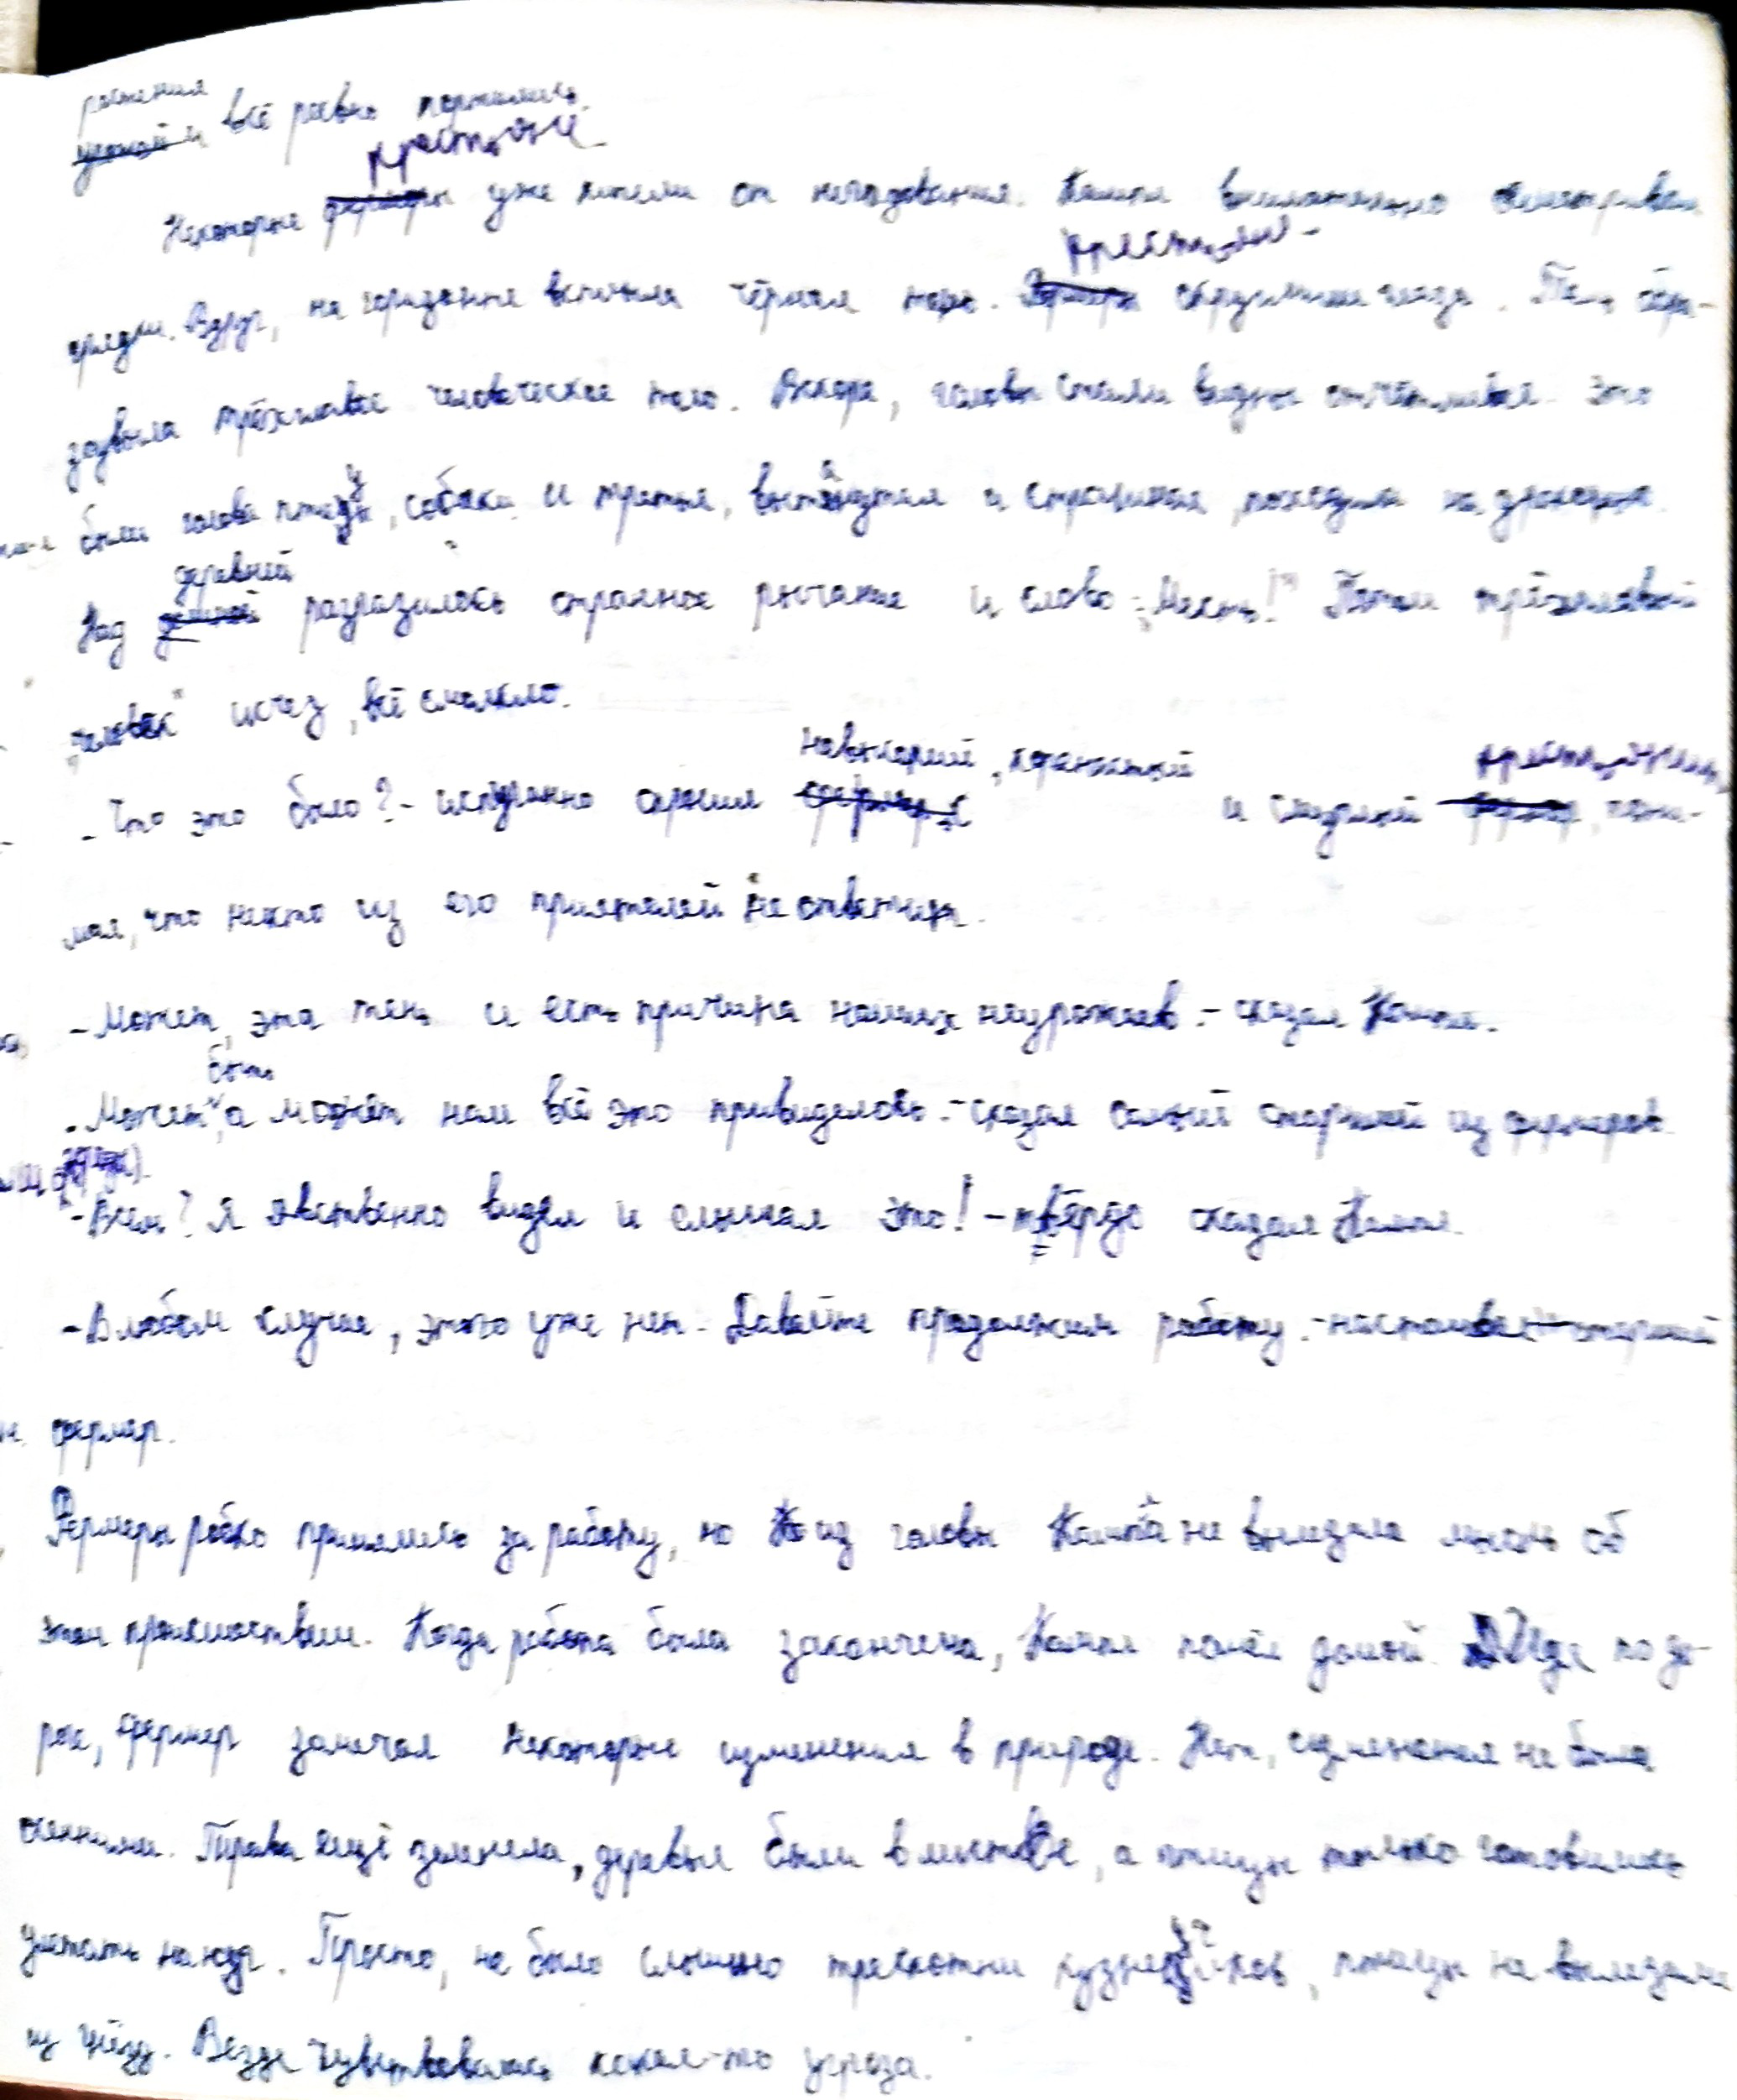 растения
урожай и всё равно портились.
крестьяне
Некоторые фермеры уже кипели от негодования. Кампа внимательно осматривал
крестьяне
грядки. Вдруг, на горизонте вспыхла чёрная тень. Фермеры глаза. Тень
трёхглавое человеческое тело. Вскоре, головы стали видны отчётливее. Это
были голова птицы, собаки и третья, вытянутая и страшная, походила на дракона.
деревней
Над разразилось странное рычание и слово: „Месть!" Потом трёхглавый
„человек" исчез, всё смолкло.
невысокий, коренастый
- Что это было? - испуганно спросил фермер и смуглый, пони-
мая, что никто из его приятелей не ответит.
- Может, эта тень и есть причина наших неурожаев. - сказал Кампа.
быть
- Может, а может нам всё это привиделось. - сказал самый старший из фермеров.
- Всем? Я явственно видел и слышал это! - твёрдо сказал Кампа.
- В любом случае, этого уже нет. Давайте продолжим работу. - настаивал старший
фермер.
Фермеры робко принялись за работу, но из головы Кампа не вылезала мысль об
этом происшествии. Когда работа была закончена, Кампа пошёл домой. Идя по до-
роге, фермер замечал некоторые изменения в природе. Нет, изменения не были
осенними. Трава ещё зеленела, деревья были в листве, а птицы только готовились
улетать на юг. Просто, не было слышно трескотни кузнечиков, птицы не вылезали
из гнёзд. Везде чувствовалась какая-то угроза.